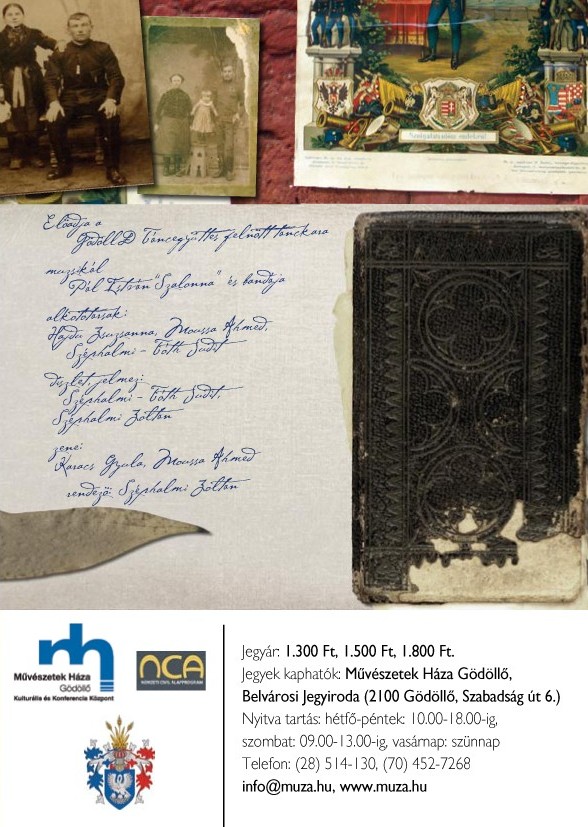 Szolgálati időm emlékéül
Előadja a
Gödöllő Táncegyüttes felnőtt tánckara
muzsikál
Pál István "Szalonna" és bandája
alkotótársak:
Hajdu Zsuzsanna, Moussa Ahmed,
Széphalmi - Tóth Judit
díszlet, jelmez:
Széphalmi - Tóth Judit,
Széphalmi Zoltán
zene:
Karacs Gyula, Moussa Ahmed
rendező: Széphalmi Zoltán
Művészetek Háza
Gödöllő
Kulturális és Konferencia Központ
NCA
NEMZETI CIVIL ALAPPROGRAM
Jegyár: 1.300 Ft, 1.500 Ft, 1.800 Ft.
Jegyek kaphatók: Művészetek Háza Gödöllő,
Belvárosi Jegyiroda (2100 Gödöllő, Szabadság út 6.)
Nyitva tartás: hétfő-péntek: 10.00-18.00-ig,
szombat: 09.00-13.00-ig, vasárnap: szünnap
Telefon: (28) 514-130, (70) 452-7268
info@muza.hu, www.muza.hu